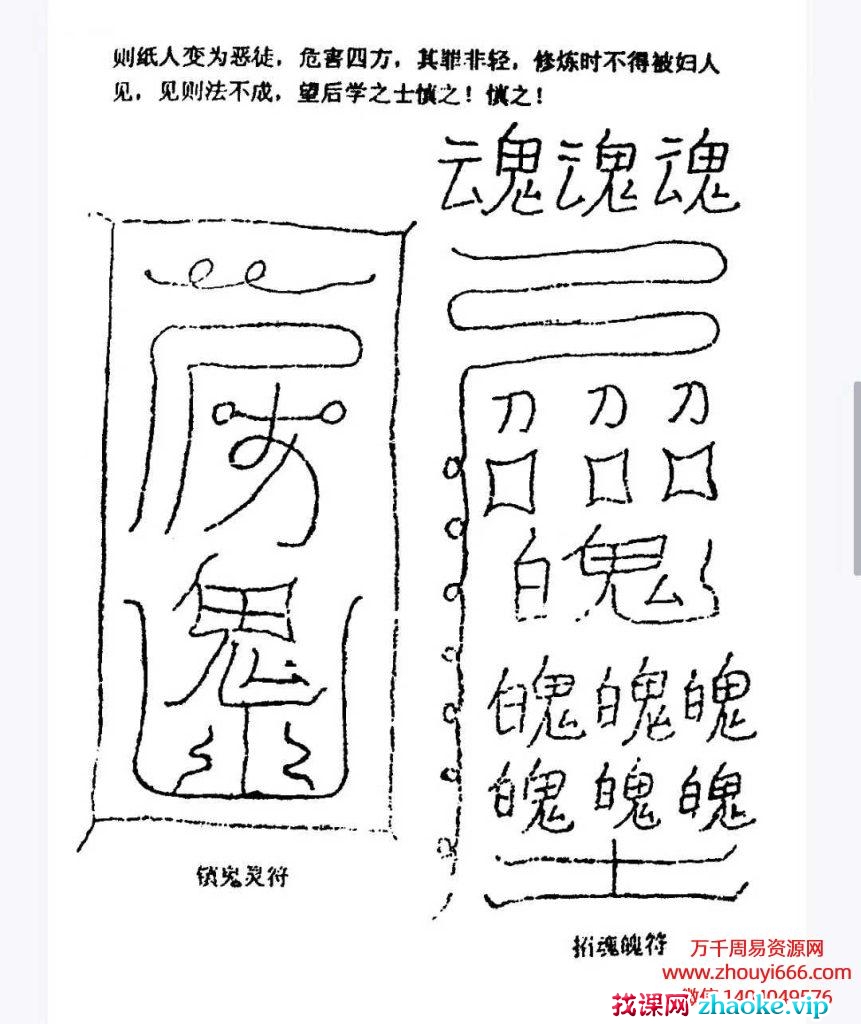 则纸人变为恶徒，危害四方，其罪非轻，修炼时不得被妇人
见，见则法不成，望后学之士慎之！慎之！
魂魂魂
刀 刀 刀
口 口 口
魄
魄魄魄
魄魄魄
鬼
锁鬼灵符
招魂魄符
万千周易资源网
www.zhouyi666.com
找课网 zhaoke.vip